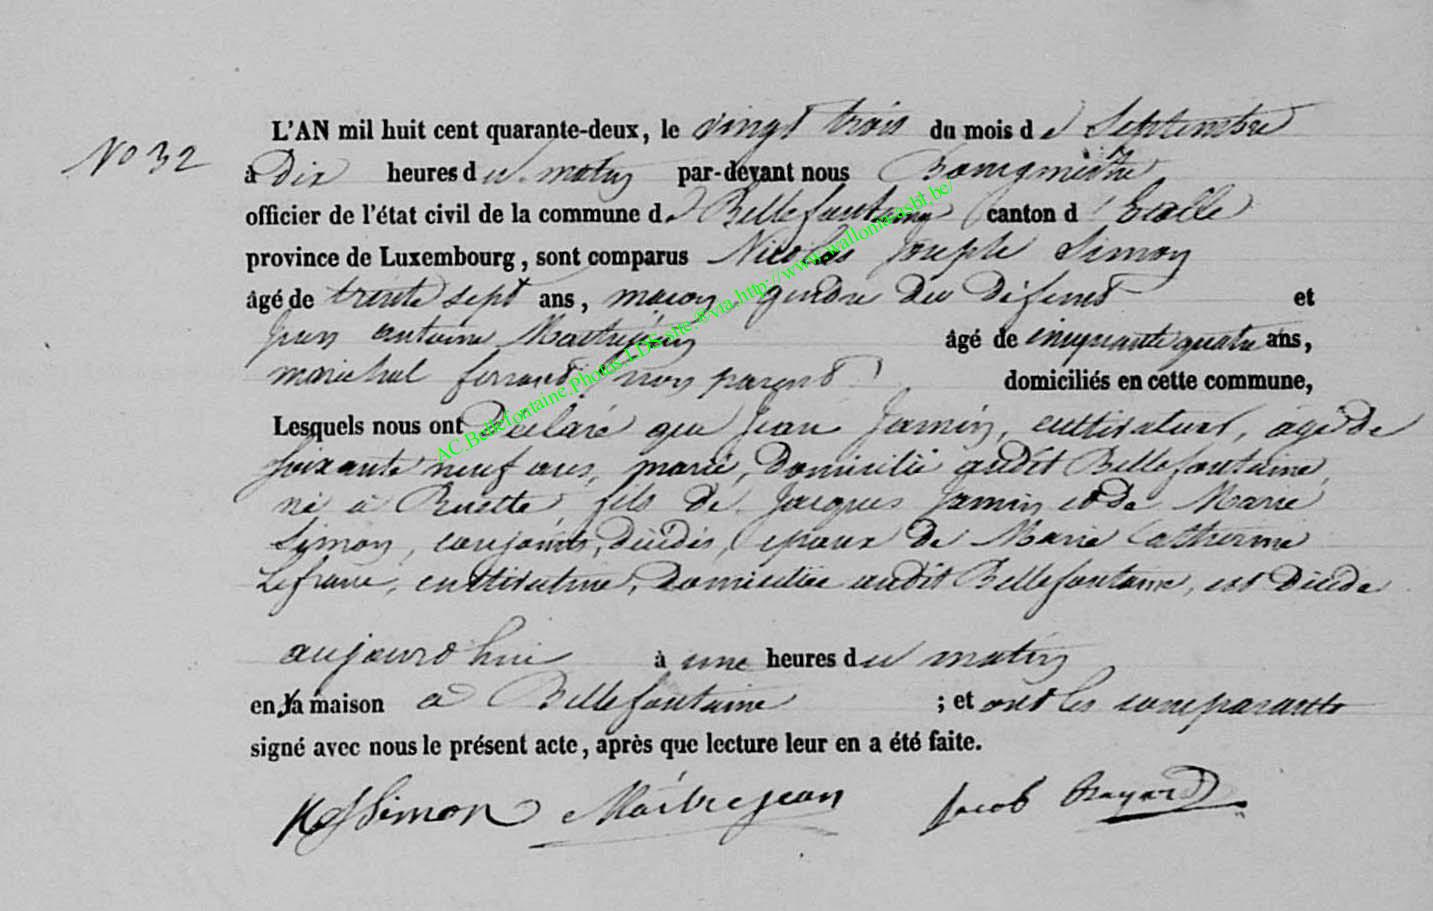 No 32
L'AN mil huit cent quarante-deux, le vingt trois du mois de Septembre
à Dix heures du matin par-devant nous Bourgmestre
officier de l'état civil de la commune de Bellefontaine canton d'Etalle
province de Luxembourg, sont comparus Nicolas Joseph Simon
âgé de trente sept ans, maçon gendre du défunt et
Jean antoine Maitrejean âgé de cinquante quatre ans,
maréchal ferrant, non parent domiciliés en cette commune,
Lesquels nous ont Déclaré que Jean Jamin, cultivateur, âgé de
soixante neuf ans, marié, domicilié audit Bellefontaine,
né à Ruette fils de Jacques Jamin et de Marie
Simon, conjoints, décédés, epoux de Marie Catherine
Lefranc, cultivatrice, domiciliée audit Bellefontaine, est décédé
aujourd'hui à une heures du matin
en sa maison à Bellefontaine ; et ont les comparants
signé avec nous le présent acte, après que lecture leur en a été faite.
NJ Simon Maitrejean Jacob
AC.Bellefontaine.Photos.LDS.site.@via.http://www.wallonia-asbl.be/